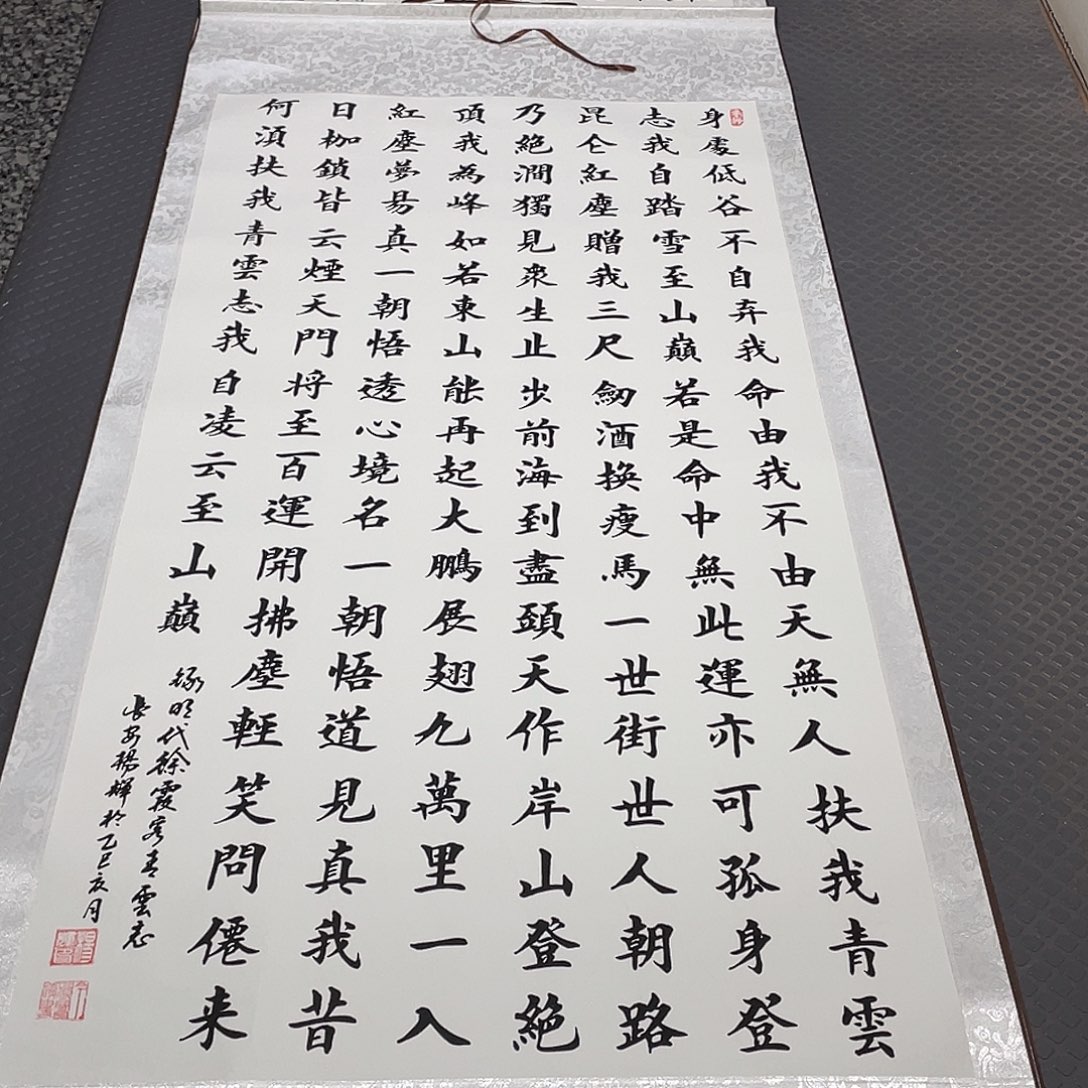 身處低谷不自弃我命由我不由天無人扶我青雲
志我自踏雪至山巔若是命中無此運亦可孤身登
昆仑紅塵贈我三尺劒酒換瘦馬一世街世人朝路
乃絶澗獨見衆生止步前海到盡頭天作岸山登絶
頂我為峰如若東山能再起大鵬展翅九萬里一入
紅塵夢易真一朝悟透心境名一朝悟道見真我昔
日枷鎖皆云煙天門将至百運開拂塵輕笑問僊来
何須扶我青雲志我自凌云至山巔
録明代徐霞客青雲志
長安楊輝於乙巳亥月